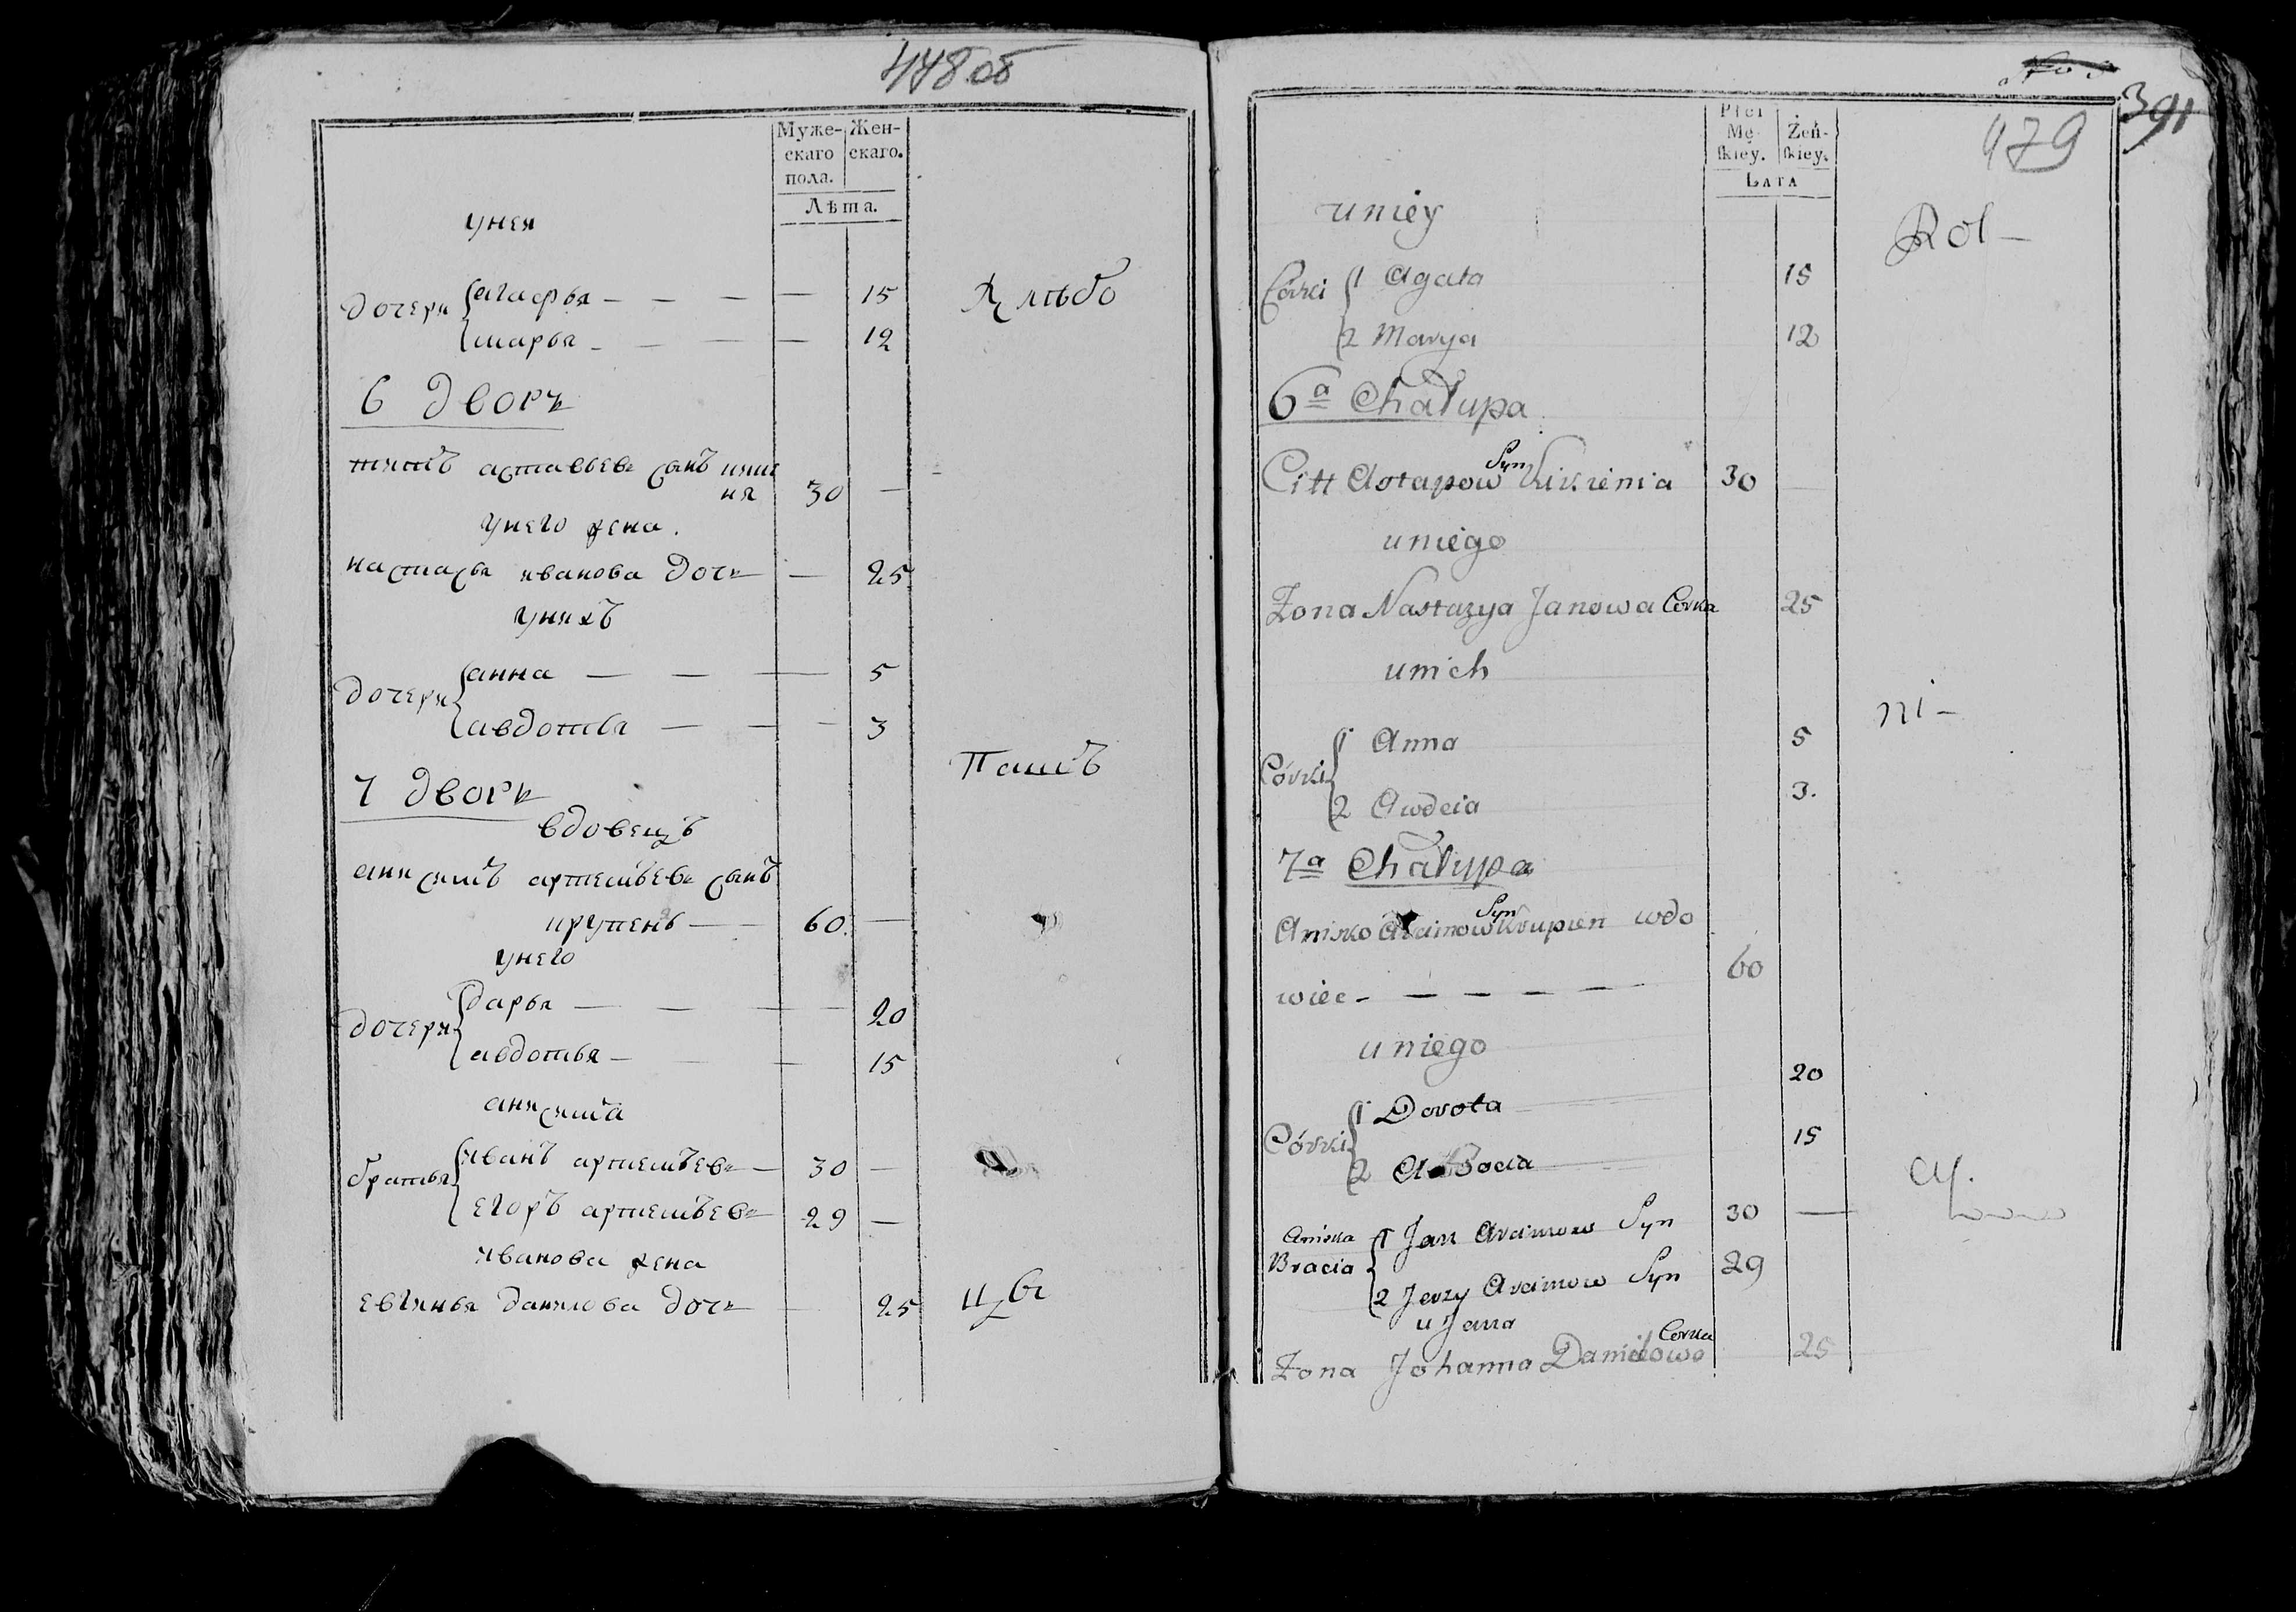 448 об
Муже- Жен-
скаго скаго.
пола.
Лѣта.
унея
Хлѣбо
дочери агафья — — — — 15
марья — — — — 12
6 дворъ
титъ астаѳьевъ сынъ кики
ня 30 —
унего жена.
настасья иванова дочь — 25
унихъ
дочери анна — — — 5
авдотья — — — 3
Паш
7 дворъ
вдовецъ
анисимъ артемьевъ сынъ
крупень — 60. —
унего
дочери дарья — — — — 20
авдотья — — — 15
анисима
братья иванъ артемьевъ — 30 —
егоръ артемьевъ 29 —
иванова жена
евгинья данилова дочь — 25
цы
391
479
Płci
Mę- Żeń-
skiey. skiey.
Lata
uniey
Rol—
Córki 1 Agata 15
2 Marya 12
6a Chałupa
Citt Astapow Syn Kikienia 30 —
uniego
Żona Nastazya Janowa Corka 25
unich
ni—
Córki 1 Anna 5
2 Awdcia 3.
7a Chałupa
Anisko Arcimow Syn Krupien wdo
wiec — — — — — 60
uniego
Córki 1 Dorota 20
2 15
cy.
Aniska
Bracia 1 Jan Arcimow Syn 30 —
2 Jerzy Arcimow Syn 29
u Jana
Żona Johanna Daniłowa Corka 25